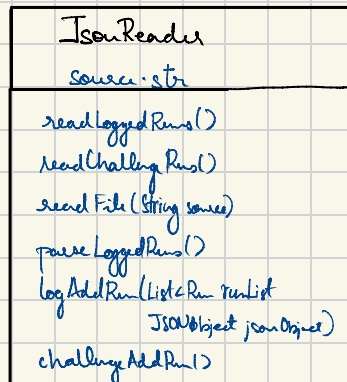 JsonReader
source: str
readLoggedRuns()
readChallengRuns()
readFile(String source)
parseLoggedRuns()
logAddRun(List<Run runList
JSONObject jsonObject)
challengeAddRun()